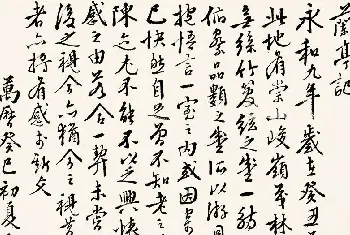 蘭亭記
永和九年歲在癸丑
此地有崇山峻嶺茂林
無絲竹管絃之盛一觴
俯察品類之盛所以游目
抱悟言一室之內或因寄
已快然自足曾不知老之
陳迹尤不能不以之興懷
感之由若合一契未嘗
後之視今亦猶今之視昔
者亦將有感於斯文
萬曆癸巳初夏